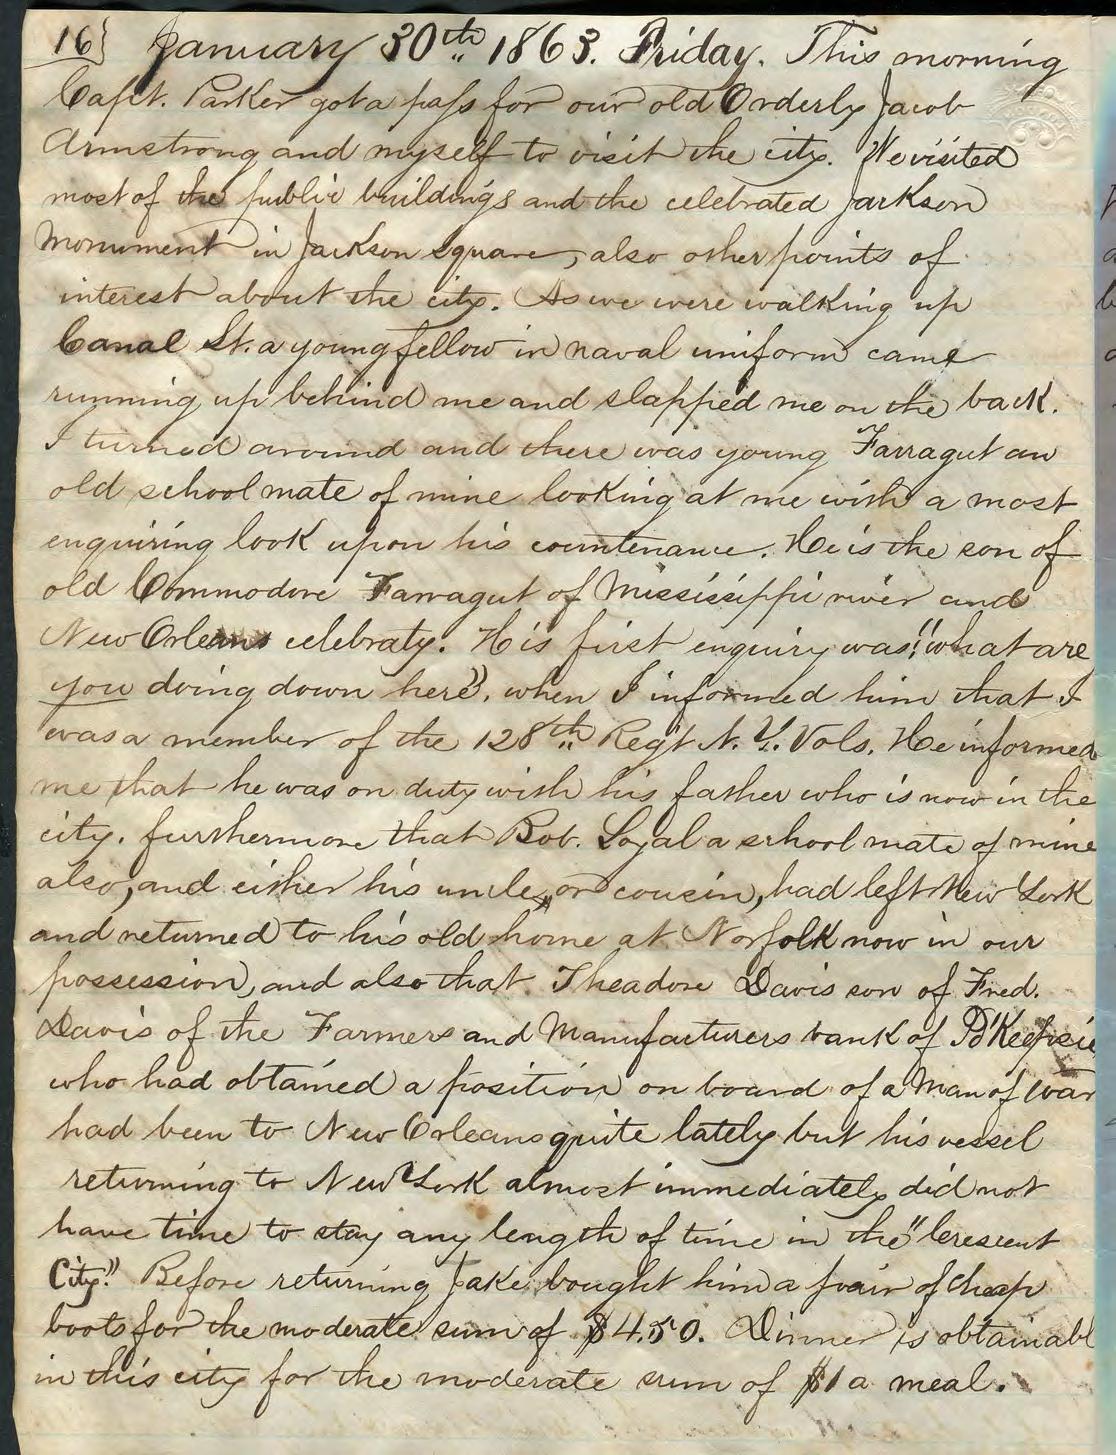 16} January 30th 1863. Friday. This morning
Capt. Parker got a pass for our old Orderly Jacob
Armstrong and myself to visit the city. We visited
most of the public buildings and the celebrated Jackson
Monument in Jackson square, also other points of
interest about the city. As we were walking up
Canal St. a young fellow in naval uniform came
running up behind me and slapped me on the back.
I turned around and there was young Farragut an
old school mate of mine looking at me with a most
enquiring look upon his countenance. He is the son of
old Commodore Farragut of Mississippi river and
New Orleans celebraty. His first enquiry was "what are
you doing down here", when I informed him that I
was a member of the 128th Reg't N. Y. Vols. He informed
me that he was on duty with his father who is now in the
city. furthermore that Bob. Loyal a school mate of mine
also, and either his uncle, or cousin, had left New York
and returned to his old home at Norfolk now in our
possession, and also that Theadore Davis son of Fred.
Davis of the Farmers and Manufacturers bank of Po'Keepsie
who had obtained a position on board of a Man of War
had been to New Orleans quite lately but his vessel
returning to New York almost immediately did not
have time to stay any length of time in the "Crescent
City." Before returning Jake bought him a pair of cheap
boots for the moderate sum of $4.50. Dinner is obtainabl
in this city for the moderate sum of $1 a meal.